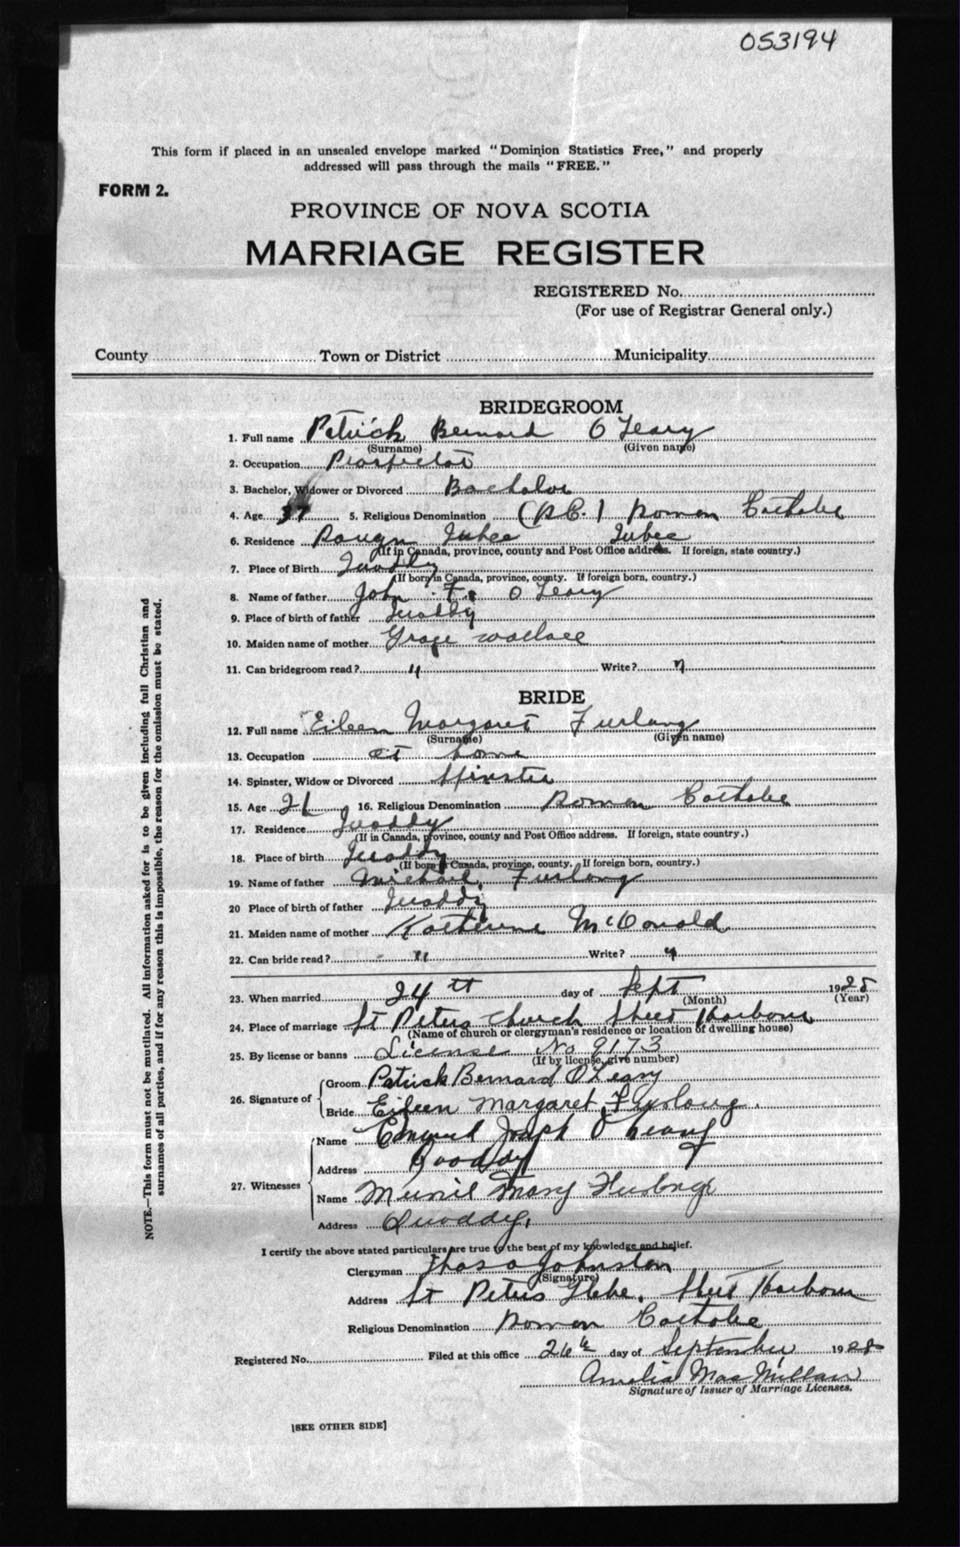 053194
This form if placed in an unsealed envelope marked "Dominion Statistics Free," and properly
addressed will pass through the mails "FREE."
FORM 2.
PROVINCE OF NOVA SCOTIA
MARRIAGE REGISTER
REGISTERED No.
(For use of Registrar General only.)
County Town or District Municipality
BRIDEGROOM
1. Full name Patrick Bernard O Leary
(Surname) (Given name)
2. Occupation Prospector
3. Bachelor, Widower or Divorced Bachelor
4. Age 37 5. Religious Denomination (R.C.) Roman Catholic
6. Residence Rouyn
(If in Canada, province, county and Post Office address. If foreign, state country.)
7. Place of Birth Quoddy
(If born in Canada, province, county. If foreign born, country.)
8. Name of father John F. O Leary
9. Place of birth of father Quoddy
10. Maiden name of mother Grace Wallace
11. Can bridegroom read? y Write? y
BRIDE
12. Full name Eileen Margaret Furlong
(Surname) (Given name)
13. Occupation at home
14. Spinster, Widow or Divorced Spinster
15. Age 21 16. Religious Denomination Roman Catholic
17. Residence Quoddy
(If in Canada, province, county and Post Office address. If foreign, state country.)
18. Place of birth Quoddy
(If born in Canada, province, county. If foreign born, country.)
19. Name of father Michael Furlong
20 Place of birth of father Quoddy
21. Maiden name of mother Katherine McDonald
22. Can bride read? y Write? y
23. When married 24th day of Sept 1928
(Month) (Year)
24. Place of marriage St Peters Church Sheet Harbour
(Name of church or clergyman's residence or location of dwelling house)
25. By license or banns License No 9173
(If by license, give number)
26. Signature of Groom Patrick Bernard O'Leary
Bride Eileen Margaret Furlong.
27. Witnesses Name Joseph O'Leary
Address Quoddy
Name Mary Furlong
Address Quoddy.
I certify the above stated particulars are true to the best of my knowledge and belief.
Clergyman Thos O Johnston
(Signature)
Address St Peters Glebe, Sheet Harbour
Religious Denomination Roman Catholic
Registered No. Filed at this office 26th day of September 1928
Amelia MacMillan
Signature of Issuer of Marriage Licenses.
[SEE OTHER SIDE]
NOTE.—This form must not be mutilated. All information asked for is to be given including full Christian and
surnames of all parties, and if for any reason this is impossible, the reason for the omission must be stated.